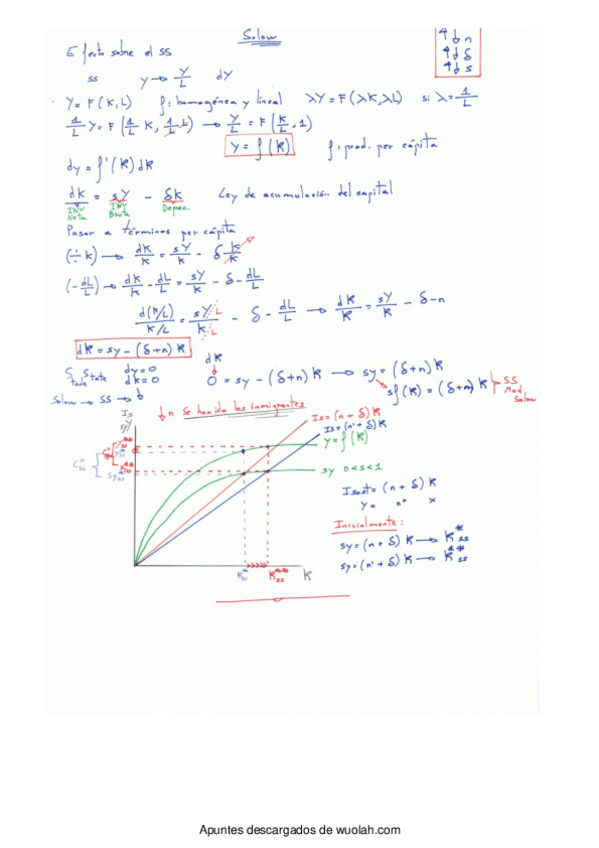 Solow
↑↓ n
↑↓ δ
↑↓ s
Efecto sobre el SS
SS y → Y/L dy
Y = F(K, L) f: homogénea y lineal λY = F(λK, λL) si λ = 1/L
1/L Y = F(1/L K, 1/L L) → Y/L = F(K/L, 1)
y = f(k) f: prod. per cápita
dy = f'(k) dk
dk = sY − δk Ley de acumulación del capital
Inv Neta Inv Bruta Deprec.
Pasar a términos per cápita
(÷ k) → dk/k = sY/k − δ k/k
(− dL/L) → dk/k − dL/L = sY/k − δ − dL/L
d(k/L)/k/L = sY:L/k:L − δ − dL/L → dk/k = sy/k − δ − n
dk = sy − (δ+n) k
dk
Steady State dy=0 dk=0 0 = sy − (δ+n) k → sy = (δ+n) k
sf(k) = (δ+n) k SS Mod Solow
Solow → SS → ↓
↓n Se han ido los inmigrantes
Is
sy
Is = (n+δ) k
Is = (n'+δ) k
y = f(k)
sy 0<s<1
Isost = (n+δ) k
y = n° x
Inicialmente:
sy = (n+δ) k → k*ss
sy = (n'+δ) k → k**ss
k*ss k**ss k
Apuntes descargados de wuolah.com